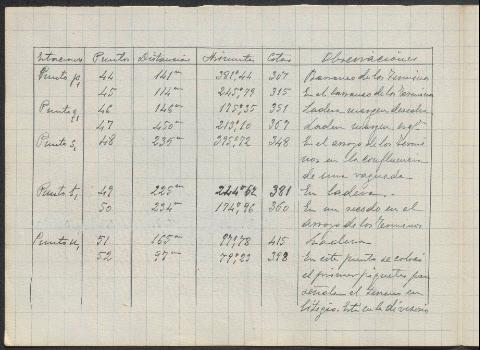 Estaciones Puntos Distancias Azimutes Cotas Observaciones
Punto p, 44 141m 381,44 307 Barranco de los Terminos
45 114m 245,79 315 En el barranco de los Terminos
Punto q, 46 146m 175,35 351 Ladera margen derecha
47 450m 213,10 367 Ladera margen izqda
Punto s, 48 235m 375,72 348 En el arroyo de los Termi
nos en la confluencia
de una vaguada
Punto t, 49 225m 224,62 381 En ladera
50 234m 174,96 360 En un recodo en el
arroyo de los Terminos
Punto u, 51 165m 97,78 415 Ladera
52 97m 79,23 398 En este punto se colocó
el primer piquete para
señalar el terreno en
litigio. Está en la divisoria